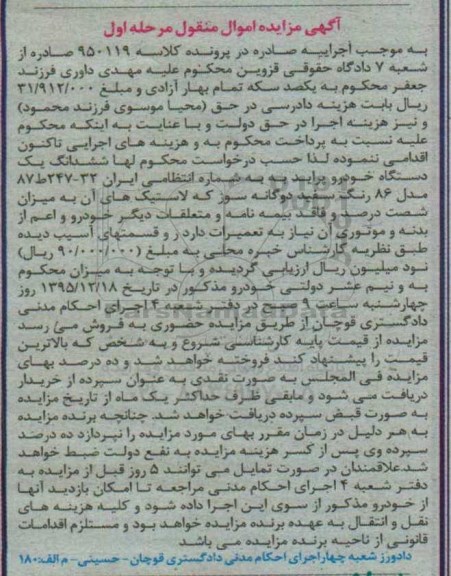 آگهی مزایده اموال منقول مرحله اول
به موجب اجراییه صادره در پرونده کلاسه ۹۵۰۱۱۹ صادره از
شعبه ۷ دادگاه حقوقی قزوین محکوم علیه مهدی داوری فرزند
جعفر محکوم به یکصد سکه تمام بهار آزادی و مبلغ ۳۱/۹۱۲/۰۰۰
ریال بابت هزینه دادرسی در حق (محیا موسوی فرزند محمود)
و نیز هزینه اجرا در حق دولت و با عنایت به اینکه محکوم
علیه نسبت به پرداخت محکوم به و هزینه های اجرایی تاکنون
اقدامی ننموده لذا حسب درخواست محکوم لها ششدانگ یک
دستگاه خودرو پراید به شماره انتظامی ایران ۳۲-۲۴۷ط۸۷
مدل ۸۶ رنگ سفید دوگانه سوز که لاستیک های آن به میزان
شصت درصد و فاقد بیمه نامه و متعلقات دیگر خودرو و اعم از
بدنه و موتوری آن نیاز به تعمیرات دارد و قسمتهای آسیب دیده
طبق نظریه کارشناس خبره محلی به مبلغ (۹۰/۰۰۰/۰۰۰ ریال)
نود میلیون ریال ارزیابی گردیده و با توجه به میزان محکوم
به و نیم عشر دولتی خودرو مذکور در تاریخ ۱۳۹۵/۱۲/۱۸ روز
چهارشنبه ساعت ۹ صبح در دفتر شعبه ۴ اجرای احکام مدنی
دادگستری قوچان از طریق مزایده حضوری به فروش می رسد
مزایده از قیمت پایه کارشناسی شروع و به شخص که بالاترین
قیمت را پیشنهاد کند فروخته خواهد شد و ده درصد بهای
مزایده فی المجلس به صورت نقدی به عنوان سپرده از خریدار
دریافت می شود و مابقی ظرف حداکثر یک ماه از تاریخ مزایده
به صورت قبض سپرده دریافت خواهد شد. چنانچه برنده مزایده
به هر دلیل در زمان مقرر بهای مورد مزایده را نپردازد ده درصد
سپرده وی پس از کسر هزینه مزایده به نفع دولت ضبط خواهد
شد.علاقمندان در صورت تمایل می توانند ۵ روز قبل از مزایده به
دفتر شعبه ۴ اجرای احکام مدنی مراجعه تا امکان بازدید آنها
از خودرو مذکور از سوی این اجرا داده شود و کلیه هزینه های
نقل و انتقال به عهده برنده مزایده خواهد بود و مستلزم اقدامات
قانونی از ناحیه برنده مزایده می باشد
دادورز شعبه چهار اجرای احکام مدنی دادگستری قوچان - حسینی- م الف:۱۸۰